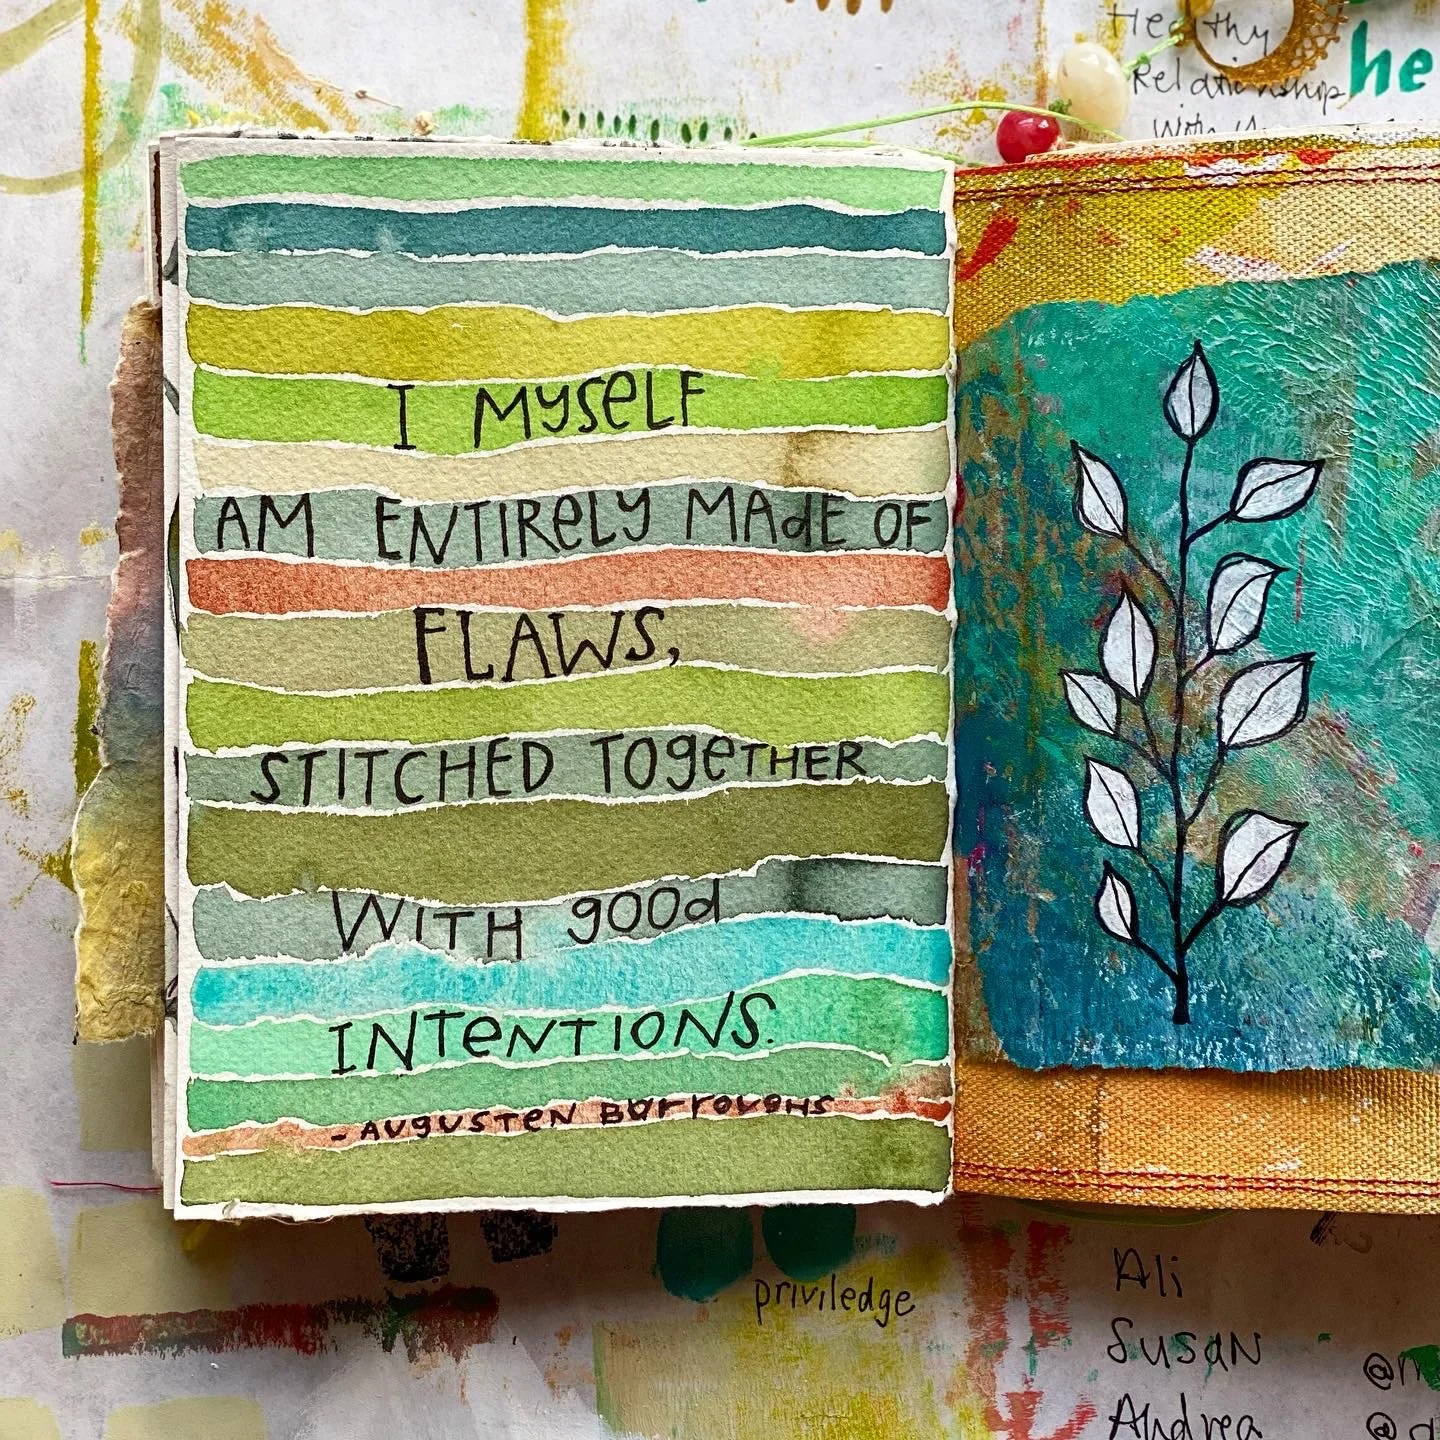 Healthy
he
Relationship
I MYSELF
AM ENTIRELY MADE OF
FLAWS,
STITCHED TOGETHER
WITH GOOD
INTENTIONS.
- AUGUSTEN BURROUGHS
priviledge
Ali
Susan
Andrea